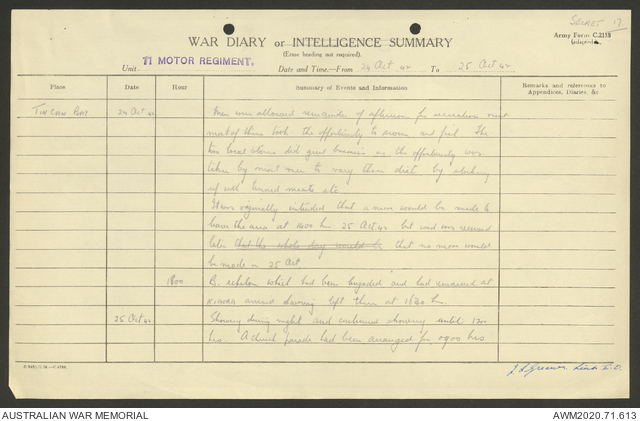 SECRET 17
WAR DIARY or INTELLIGENCE SUMMARY
(Erase heading not required).
Army Form C.2118
(adapted).
Unit 11 MOTOR REGIMENT.
Date and Time.—From 24 Oct 42 To 25 Oct 42
Place Date Hour Summary of Events and Information Remarks and references to
Appendices, Diaries, &c
TIN CAN BAY 24 Oct 42 Men were allowed remainder of afternoon for recreation and
most of them took the opportunity to swim and fish. The
two local stores did great business as the opportunity was
taken by most men to vary their diet by
of tinned meats etc
It was originally intended that a move would be made to
leave the area at 1400 hrs 25 Oct 42 but word was received
later that the whole day would be that no move would
be made on 25 Oct.
1800 B. echelon which had been and had remained at
arrived having left there at 1630 hrs.
25 Oct 42 Showery during night and continued showery until 1200
hrs. A church parade had been arranged for 0900 hrs
Lieut I.O.
AUSTRALIAN WAR MEMORIAL
AWM2020.71.613